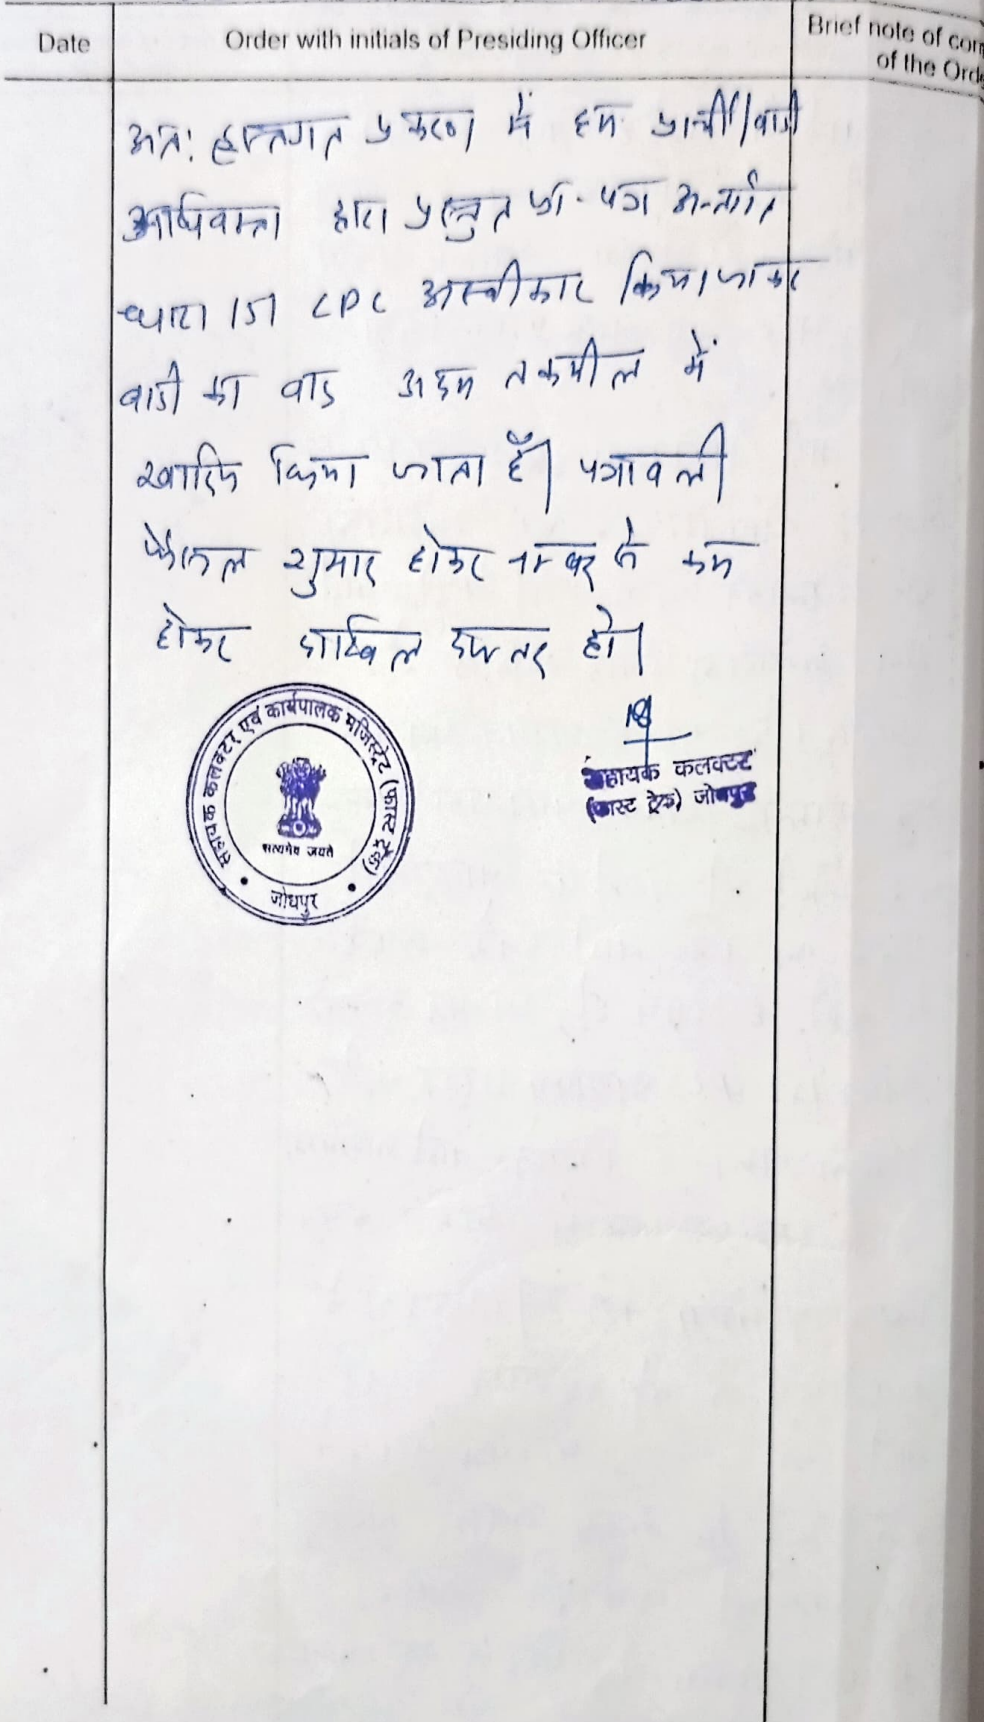 Date
Order with initials of Presiding Officer
Brief note of com
of the Orde
अतः हस्तगत प्रकरण में हम प्रार्थी/वादी
अधिवक्ता द्वारा प्रस्तुत प्रा.पत्र अन्तर्गत
धारा 151 CPC अस्वीकार किया जाकर
वादी का वाद अदम तकमील में
खारिज किया जाता है। पत्रावली
फैसल शुमार होकर नम्बर से कम
होकर दाखिल दफ्तर हो।
सहायक कलक्टर
(फास्ट ट्रेक) जोधपुर
सहायक कलक्टर एवं कार्यपालक मजिस्ट्रेट (फास्ट ट्रैक)
सत्यमेव जयते
जोधपुर